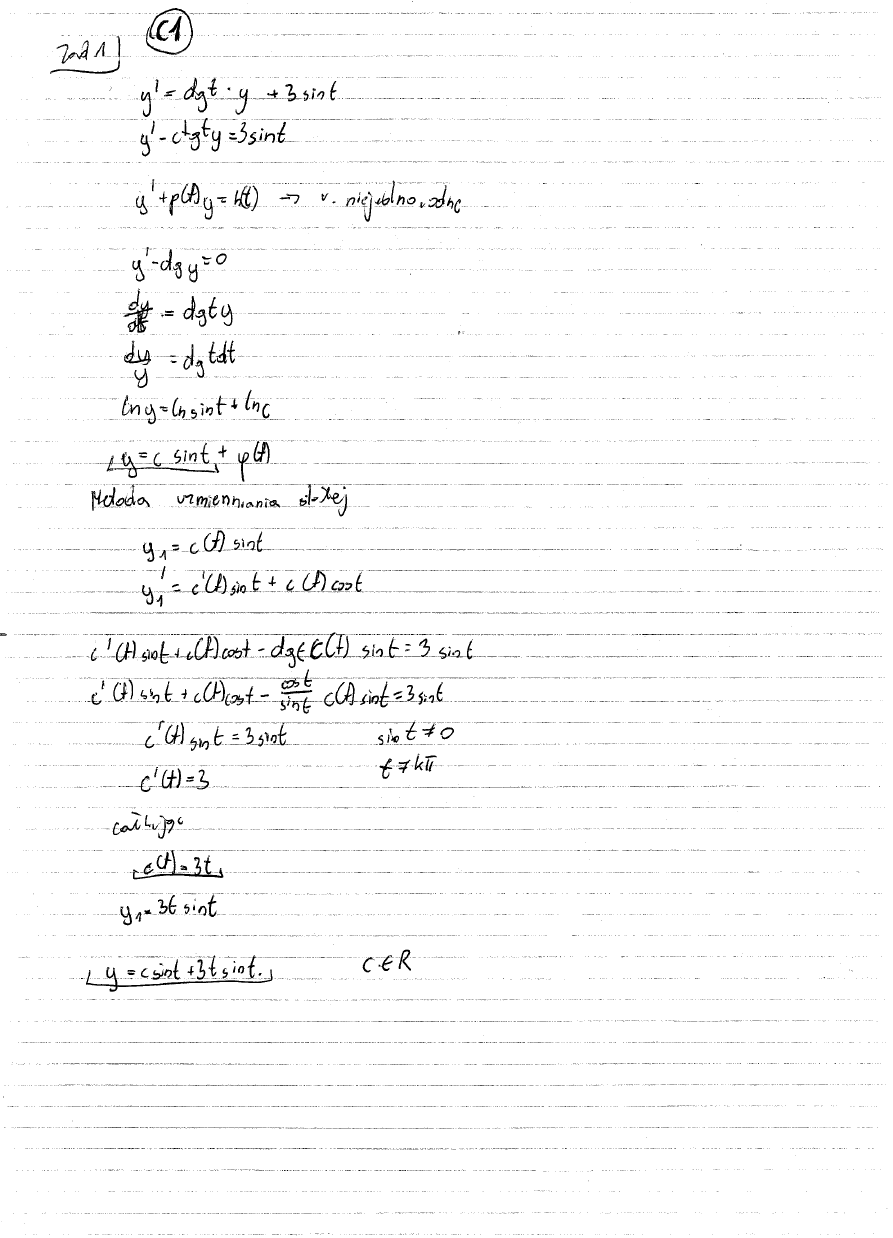 C1
Zad 1
y' = ctgt · y + 3 sint
y' - ctgty = 3sint
y' + p(t)y = h(t) → r. niejednorodne
y' - ctg y = 0
dy/dt = ctgty
dy/y = ctgtdt
ln y = ln sint + lnc
y = c sint + φ(t)
Metoda uzmienniania stałej
y₁ = c(t) sint
y₁' = c'(t) sin t + c(t) cost
c'(t) sint + c(t) cost - ctgt c(t) sint = 3 sint
c'(t) sint + c(t) cost - cost/sint c(t) sint = 3 sint
c'(t) sint = 3 sint sin t ≠ 0
c'(t) = 3 t ≠ kπ
całkując
c(t) = 3t
y₁ = 3t sint
y = c sint + 3t sint. C ∈ R